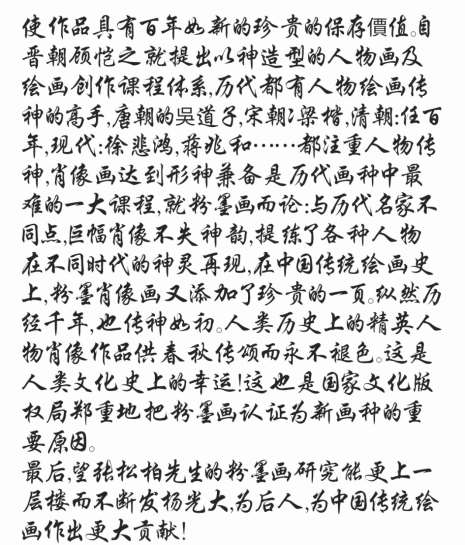 使作品具有百年如新的珍贵的保存價值。自
晋朝顾恺之就提出以神造型的人物画及
绘画创作课程体系,历代都有人物绘画传
神的高手,唐朝的吳道子,宋朝:梁楷,清朝:任百
年,现代:徐悲鸿,蒋兆和……都注重人物传
神,肖像画达到形神兼备是历代画种中最
难的一大课程,就粉墨画而论:与历代名家不
同点,巨幅肖像不失神韵,提练了各种人物
在不同时代的神灵再现,在中国传统绘画史
上,粉墨肖像画又添加了珍贵的一页。纵然历
经千年,也传神如初。人类历史上的精英人
物肖像作品供春秋传颂而永不褪色。这是
人类文化史上的幸运!这也是国家文化版
权局郑重地把粉墨画认证为新画种的重
要原因。
最后,望张松柏先生的粉墨画研究能更上一
层楼而不断发扬光大,为后人,为中国传统绘
画作出更大贡献!